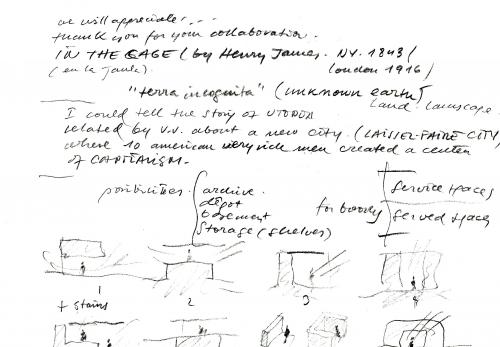 we will appreciate...
thank you for your collaboration.
IN THE CAGE (by Henry James. NY. 1843/
(en la jaula). London 1916)
"terra incognita" (unknown earth)
land. landscape
I could tell the story of UTOPIA
related by V.V. about a new city. (LAISSEZ-FAIRE CITY)
where 10 american very rich men created a center
of CAPITALISM.
possibilities.
archive.
depot
basement
Storage (shelves)
for books
service spaces
served spaces
1
2
3
4
+ stairs